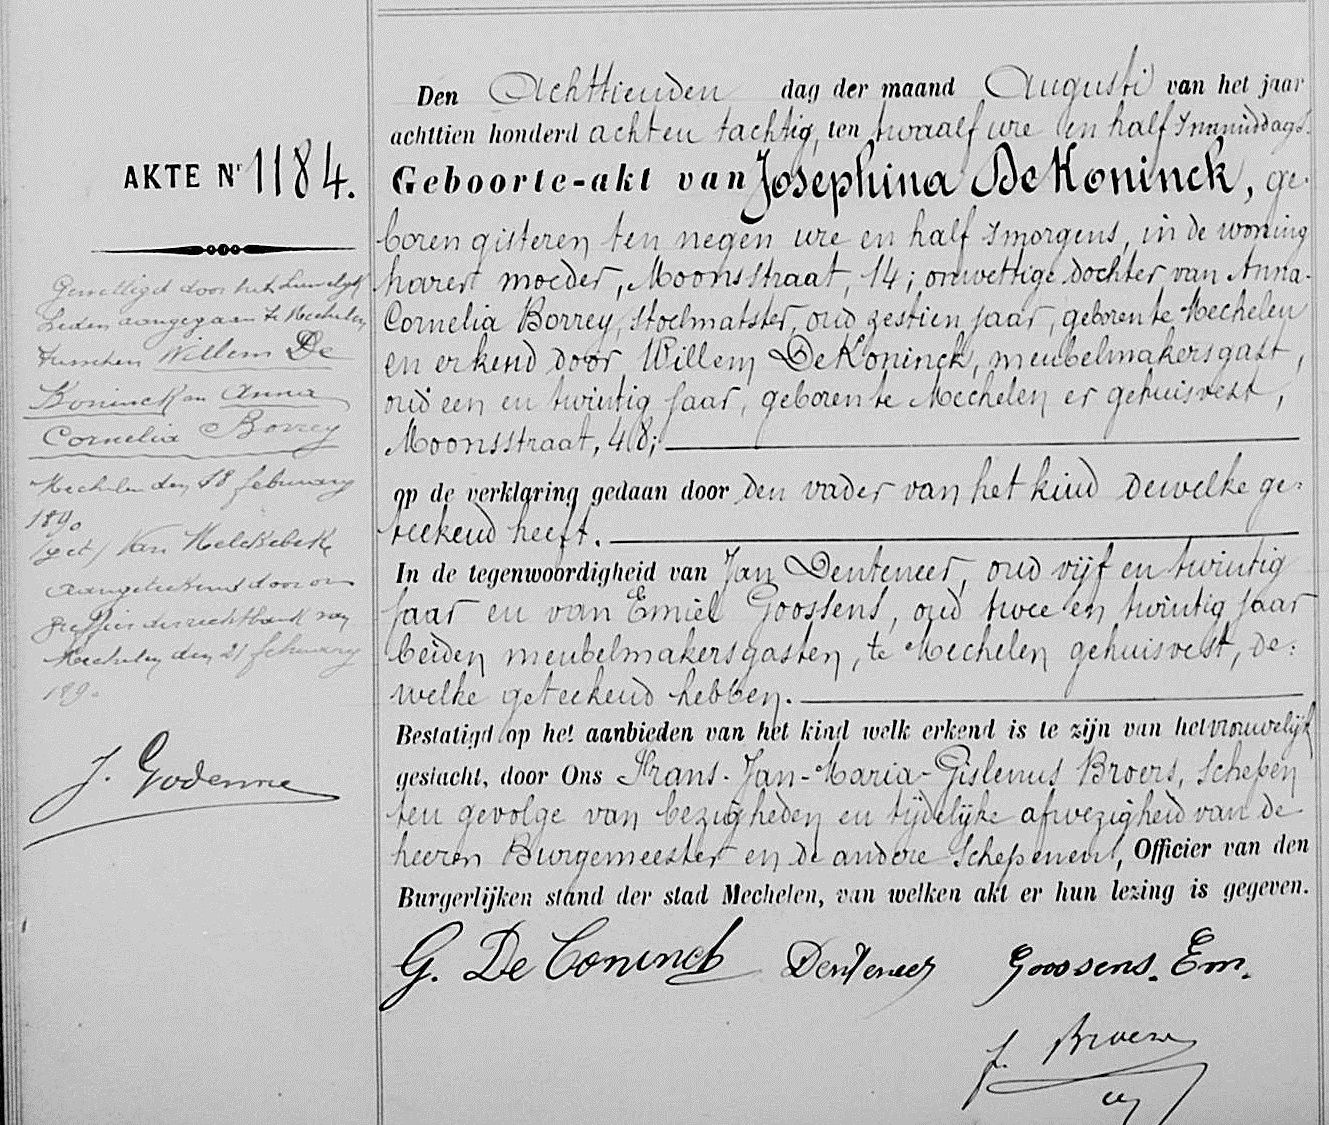 AKTE Nr 1184.
Gewettigd door het huwelijk
leden aangegaan te Mechelen
tusschen Willem De
Koninck en Anna
Cornelia Borrey
Mechelen den 18 february
1890
(get) Van Melckebeke
aangeteekend door on
greffier der rechtbank van
Mechelen den 21 february
1890
J. Godenne
Den Achttienden dag der maand Augusti van het jaar
achttien honderd acht en tachtig, ten twaalf ure en half s'namiddags.
Geboorte-akt van Josephina De Koninck, ge-
boren gisteren ten negen ure en half s'morgens, in de woning
harer moeder, Moonsstraat, 14; onwettige dochter van Anna-
Cornelia Borrey, stoelmatster, oud zestien jaar, geboren te Mechelen
en erkend door Willem De Koninck, meubelmakersgast,
oud een en twintig jaar, geboren te Mechelen er gehuisvest,
Moonsstraat, 48;
op de verklaring gedaan door den vader van het kind dewelke ge-
teekend heeft.
In de tegenwoordigheid van Jan Denteneer, oud vijf en twintig
jaar en van Emiel Goossens, oud twee en twintig jaar
beiden meubelmakersgasten, te Mechelen gehuisvest, de:
welke geteekend hebben.
Bestatigd op het aanbieden van het kind welk erkend is te zijn van het vrouwelijk
geslacht, door Ons Frans-Jan-Maria-Gislenus Broers, Schepen
ten gevolge van bezigheden en tijdelijke afwezigheid van de
heeren Burgemeester en de andere Schepenen, Officier van den
Burgerlijken stand der stad Mechelen, van welken akt er hun lezing is gegeven.
G. De Coninck Denteneer Goossens. Em.
f. Broers